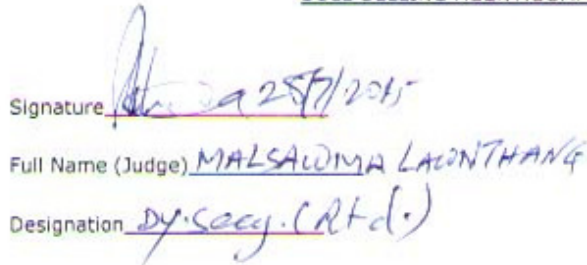 Signature 25/7/2015
Full Name (Judge) MALSAWMA LAWNTHANG
Designation Dy. Secy. (Rtd.)